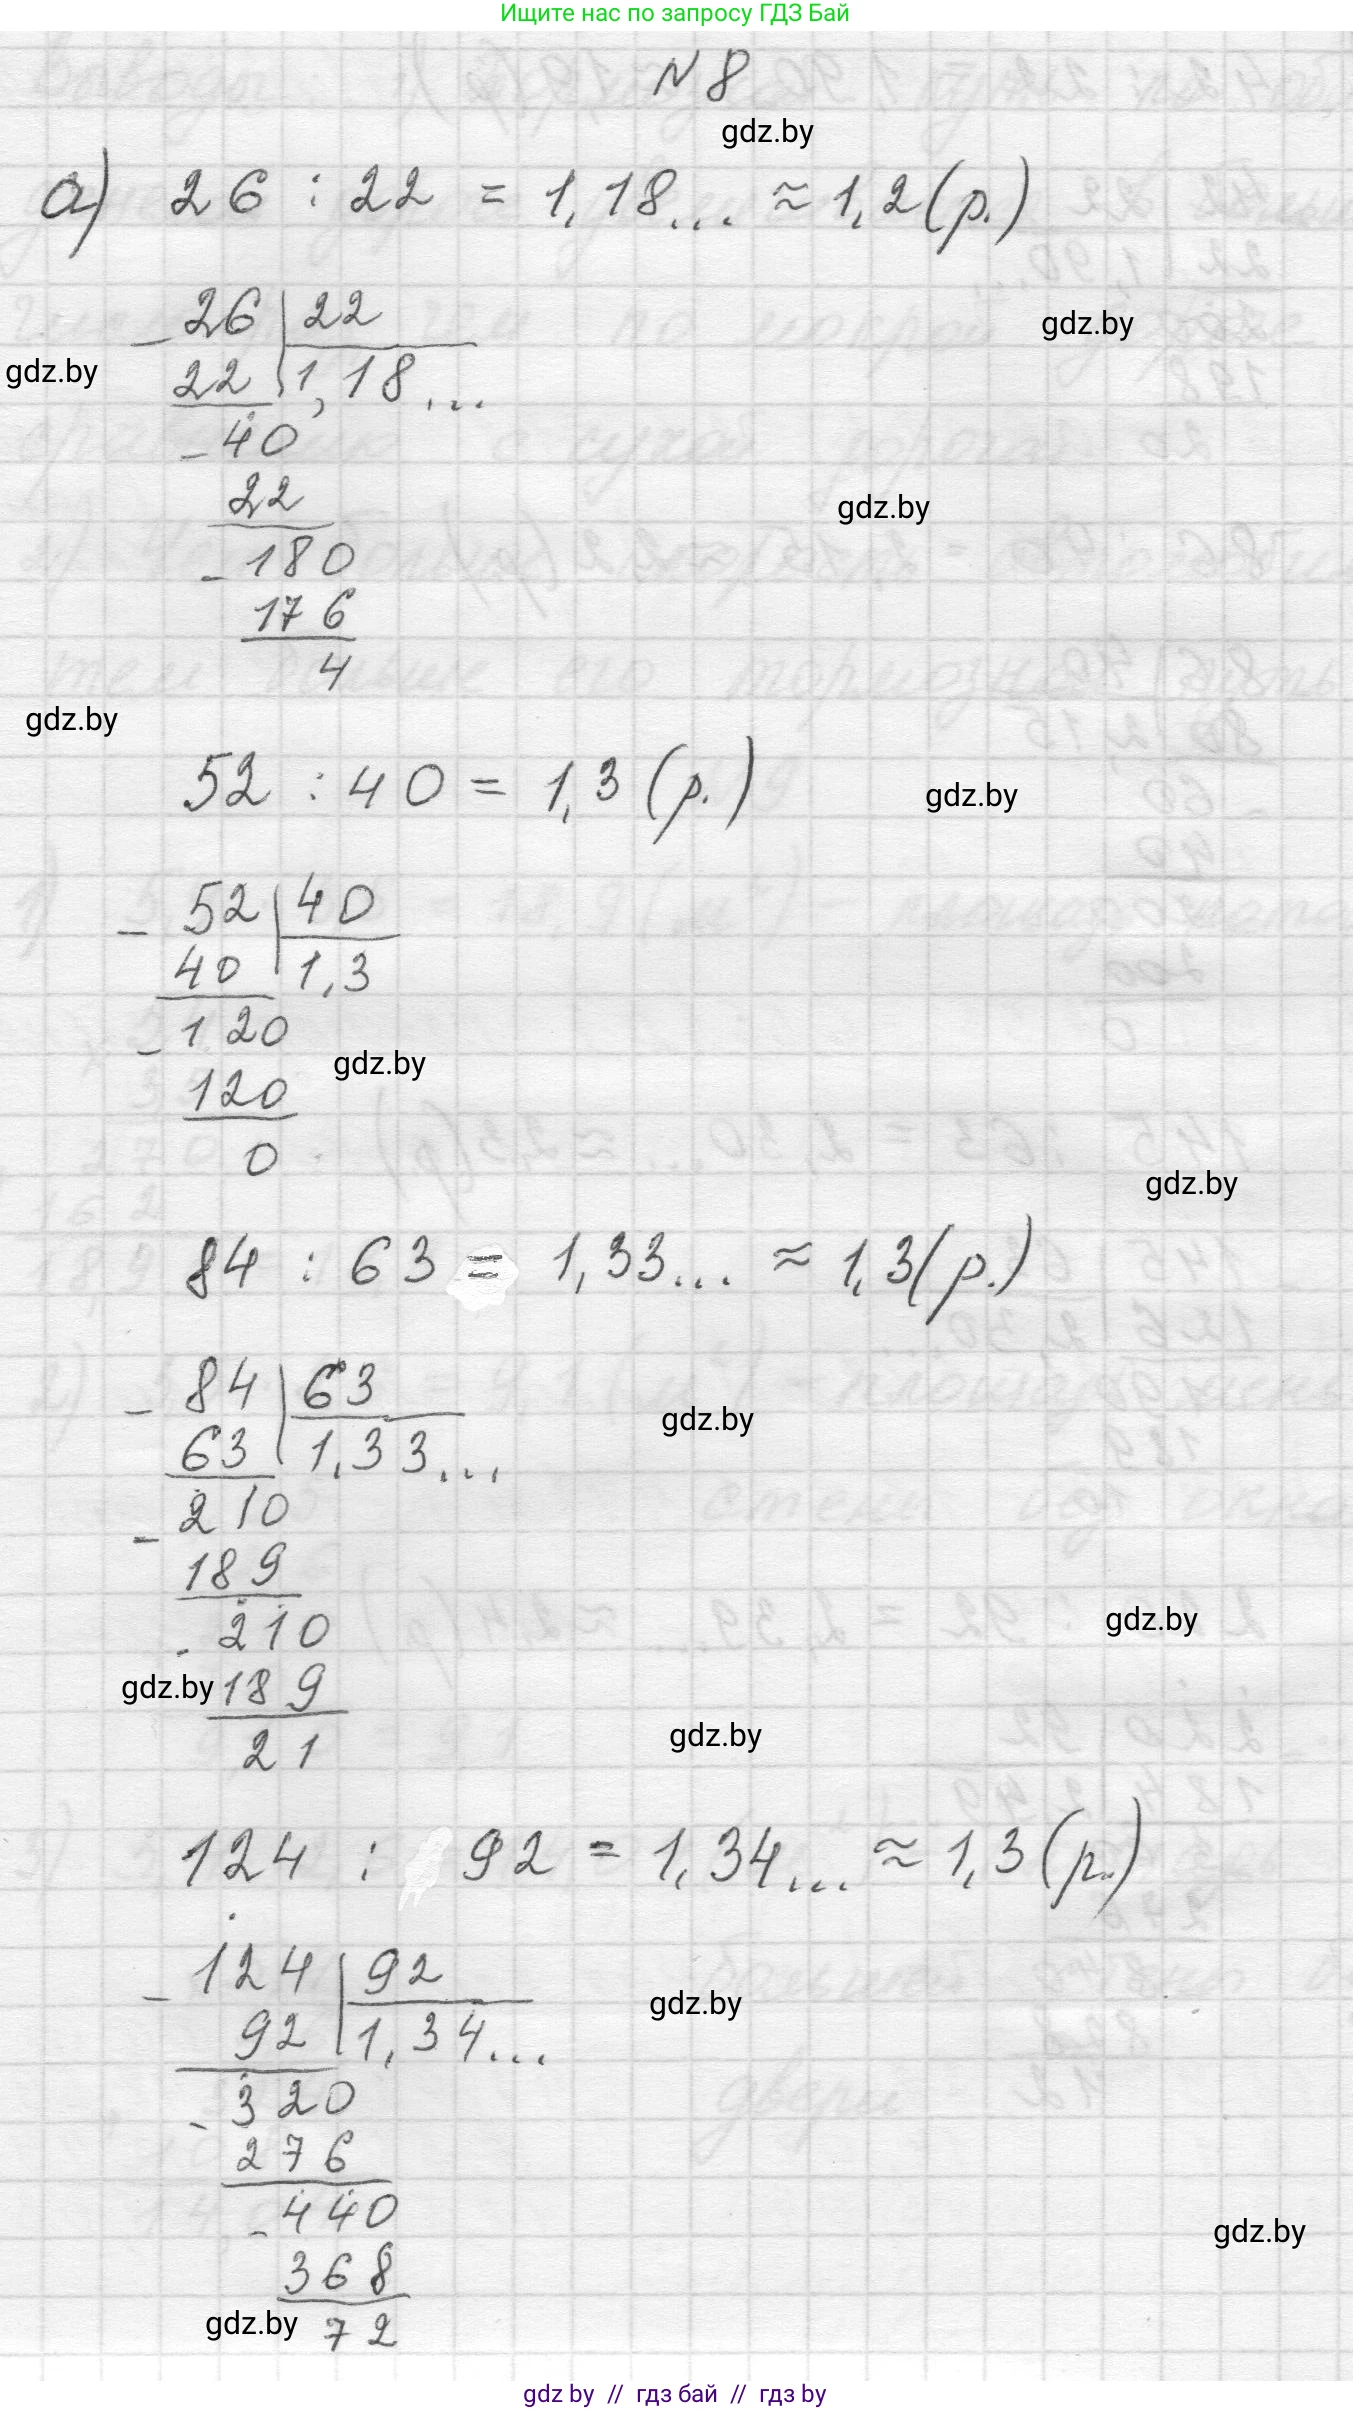 Ищите нас по запросу ГДЗ Бай
N 8
gdz.by
а) 26 : 22 = 1,18... ≈ 1,2 (р.)
26 | 22
gdz.by
gdz.by
22 | 1,18...
- 40
22
gdz.by
- 180
176
4
gdz.by
52 : 40 = 1,3 (р.)
gdz.by
- 52 | 40
40 | 1,3
- 120
gdz.by
120
0
gdz.by
84 : 63 = 1,33... ≈ 1,3 (р.)
- 84 | 63
gdz.by
63 | 1,33...
- 210
189
gdz.by
- 210
gdz.by
189
gdz.by
21
124 : 92 = 1,34... ≈ 1,3 (р.)
- 124 | 92
gdz.by
92 | 1,34...
- 320
276
- 440
gdz.by
368
gdz.by
72
gdz by // гдз бай // гдз by